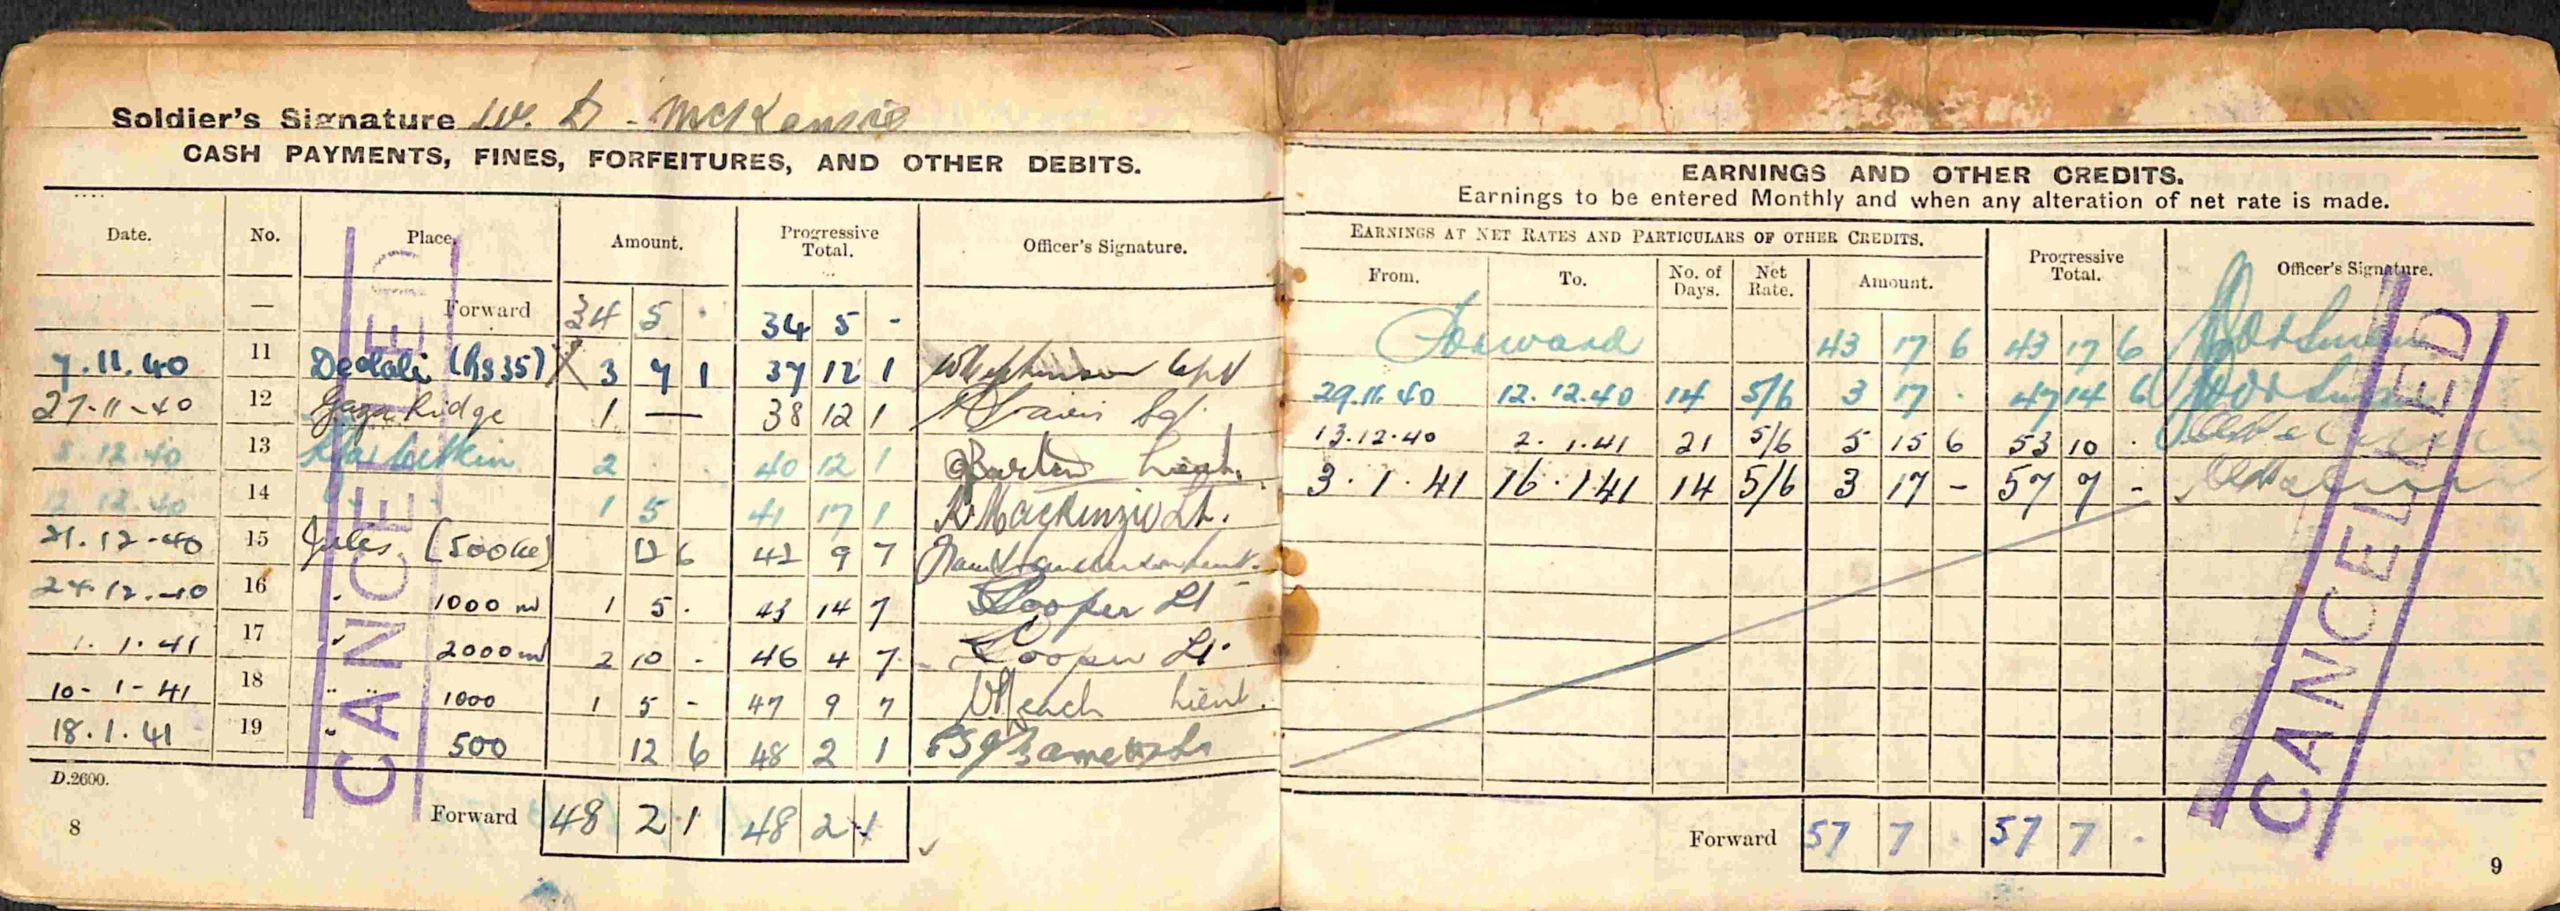 Soldier's Signature W. D. McKenzie
CASH PAYMENTS, FINES, FORFEITURES, AND OTHER DEBITS.
Date. No. Place. Amount. Progressive Total. Officer's Signature.
— Forward 34 5 . 34 5 -
7.11.40 11 Deolali (Rs35) X 3 7 1 37 12 1 Capt
27-11-40 12 Gaza Ridge 1 — 38 12 1
12.40 13 2 . . 40 12 1 Barton Lieut.
12.40 14 " 1 5 41 17 1 K MacKenzie Lt.
21.12-40 15 Julis (500 12 6 42 9 7
24.12.-40 16 " 1000 m 1 5 . 43 14 7 Cooper Lt
1.1.41 17 " 2000 m 2 10 - 46 4 7 Cooper Lt
10-1-41 18 " " 1000 1 5 - 47 9 7 Lieut.
18.1.41 19 " 500 12 6 48 2 1
D.2600.
Forward 48 2 1 48 2 1
8
CANCELLED
EARNINGS AND OTHER CREDITS.
Earnings to be entered Monthly and when any alteration of net rate is made.
EARNINGS AT NET RATES AND PARTICULARS OF OTHER CREDITS.
From. To. No. of Days. Net Rate. Amount. Progressive Total. Officer's Signature.
Forward 43 17 6 43 17 6
29.11.40 12.12.40 14 5/6 3 17 . 47 14 6
13.12.40 2.1.41 21 5/6 5 15 6 53 10 .
3.1.41 16.1.41 14 5/6 3 17 - 57 7 -
Forward 57 7 . 57 7 .
9
CANCELLED